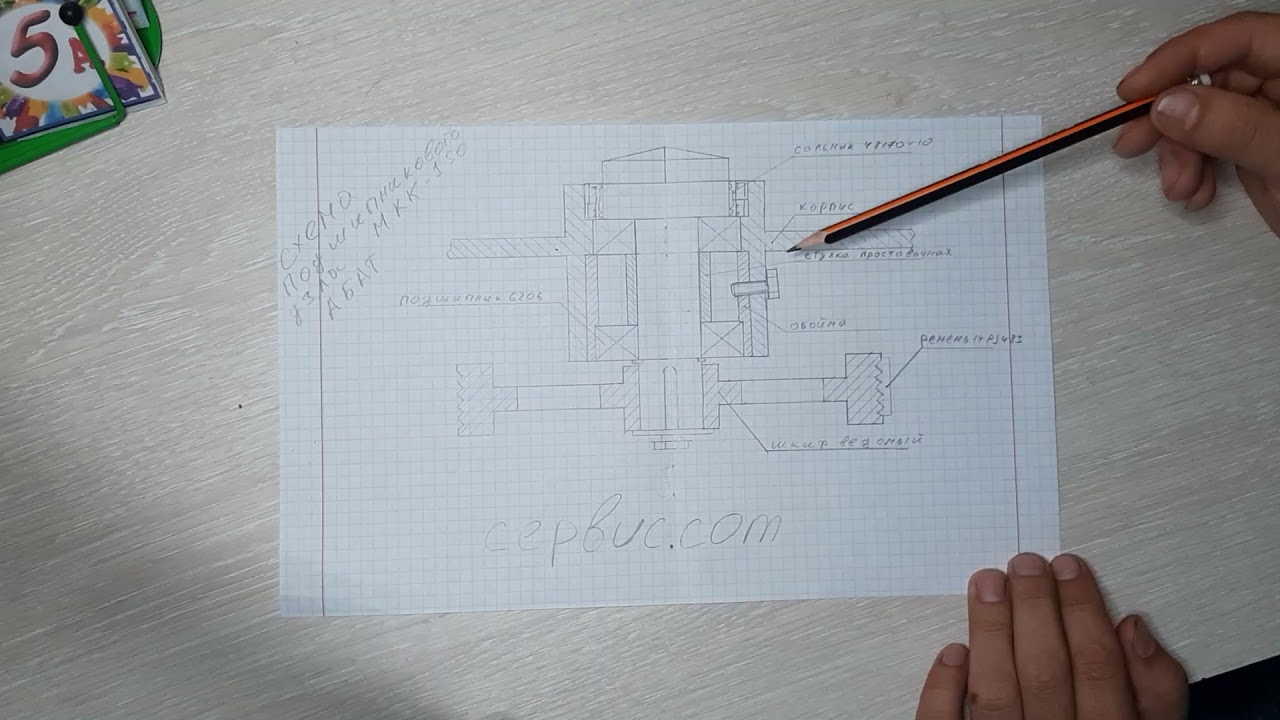 5 А
схема
подшипникового
узла
АБАТ МКК-150
сальник 48х70х10
корпус
втулка проставочная
подшипник 6206
обойма
ремень 14PJ483
шкив ведомый
сервис.com